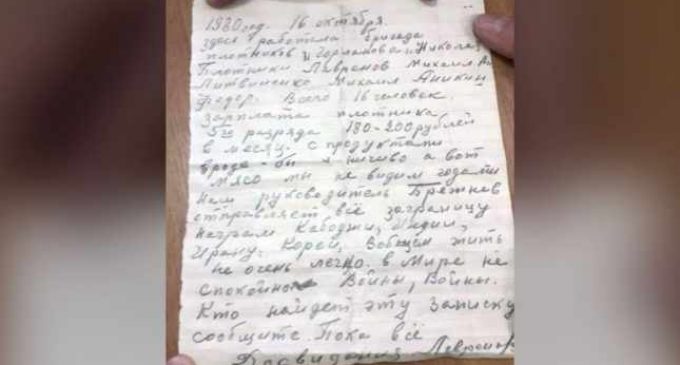 1980 год. 16 октября.
здесь работала бригада
плотников Горланова Николая
Плотники Лавронов Михаил
Литвиненко Михаил Аникин
Федор. Всего 16 человек.
Зарплата плотника
5го разряда 180-200 рублей
в месяц. с продуктами
вроде-бы и ничиво а вот
мясо мы не видим годами
Наш руководитель Брежнев
отправляет всё заграницу
Неграм Кабоджи, Индии,
Ирану, Кореи, Вобщем жить
не очень легко. в Мире не
спокойно Войны, Войны.
Кто найдет эту Записку
сообщите. Пока всё
Досвидания